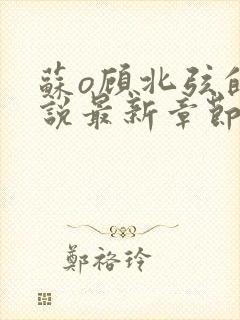 蘇o顾北弦的
說最新章節
鄭袼玲